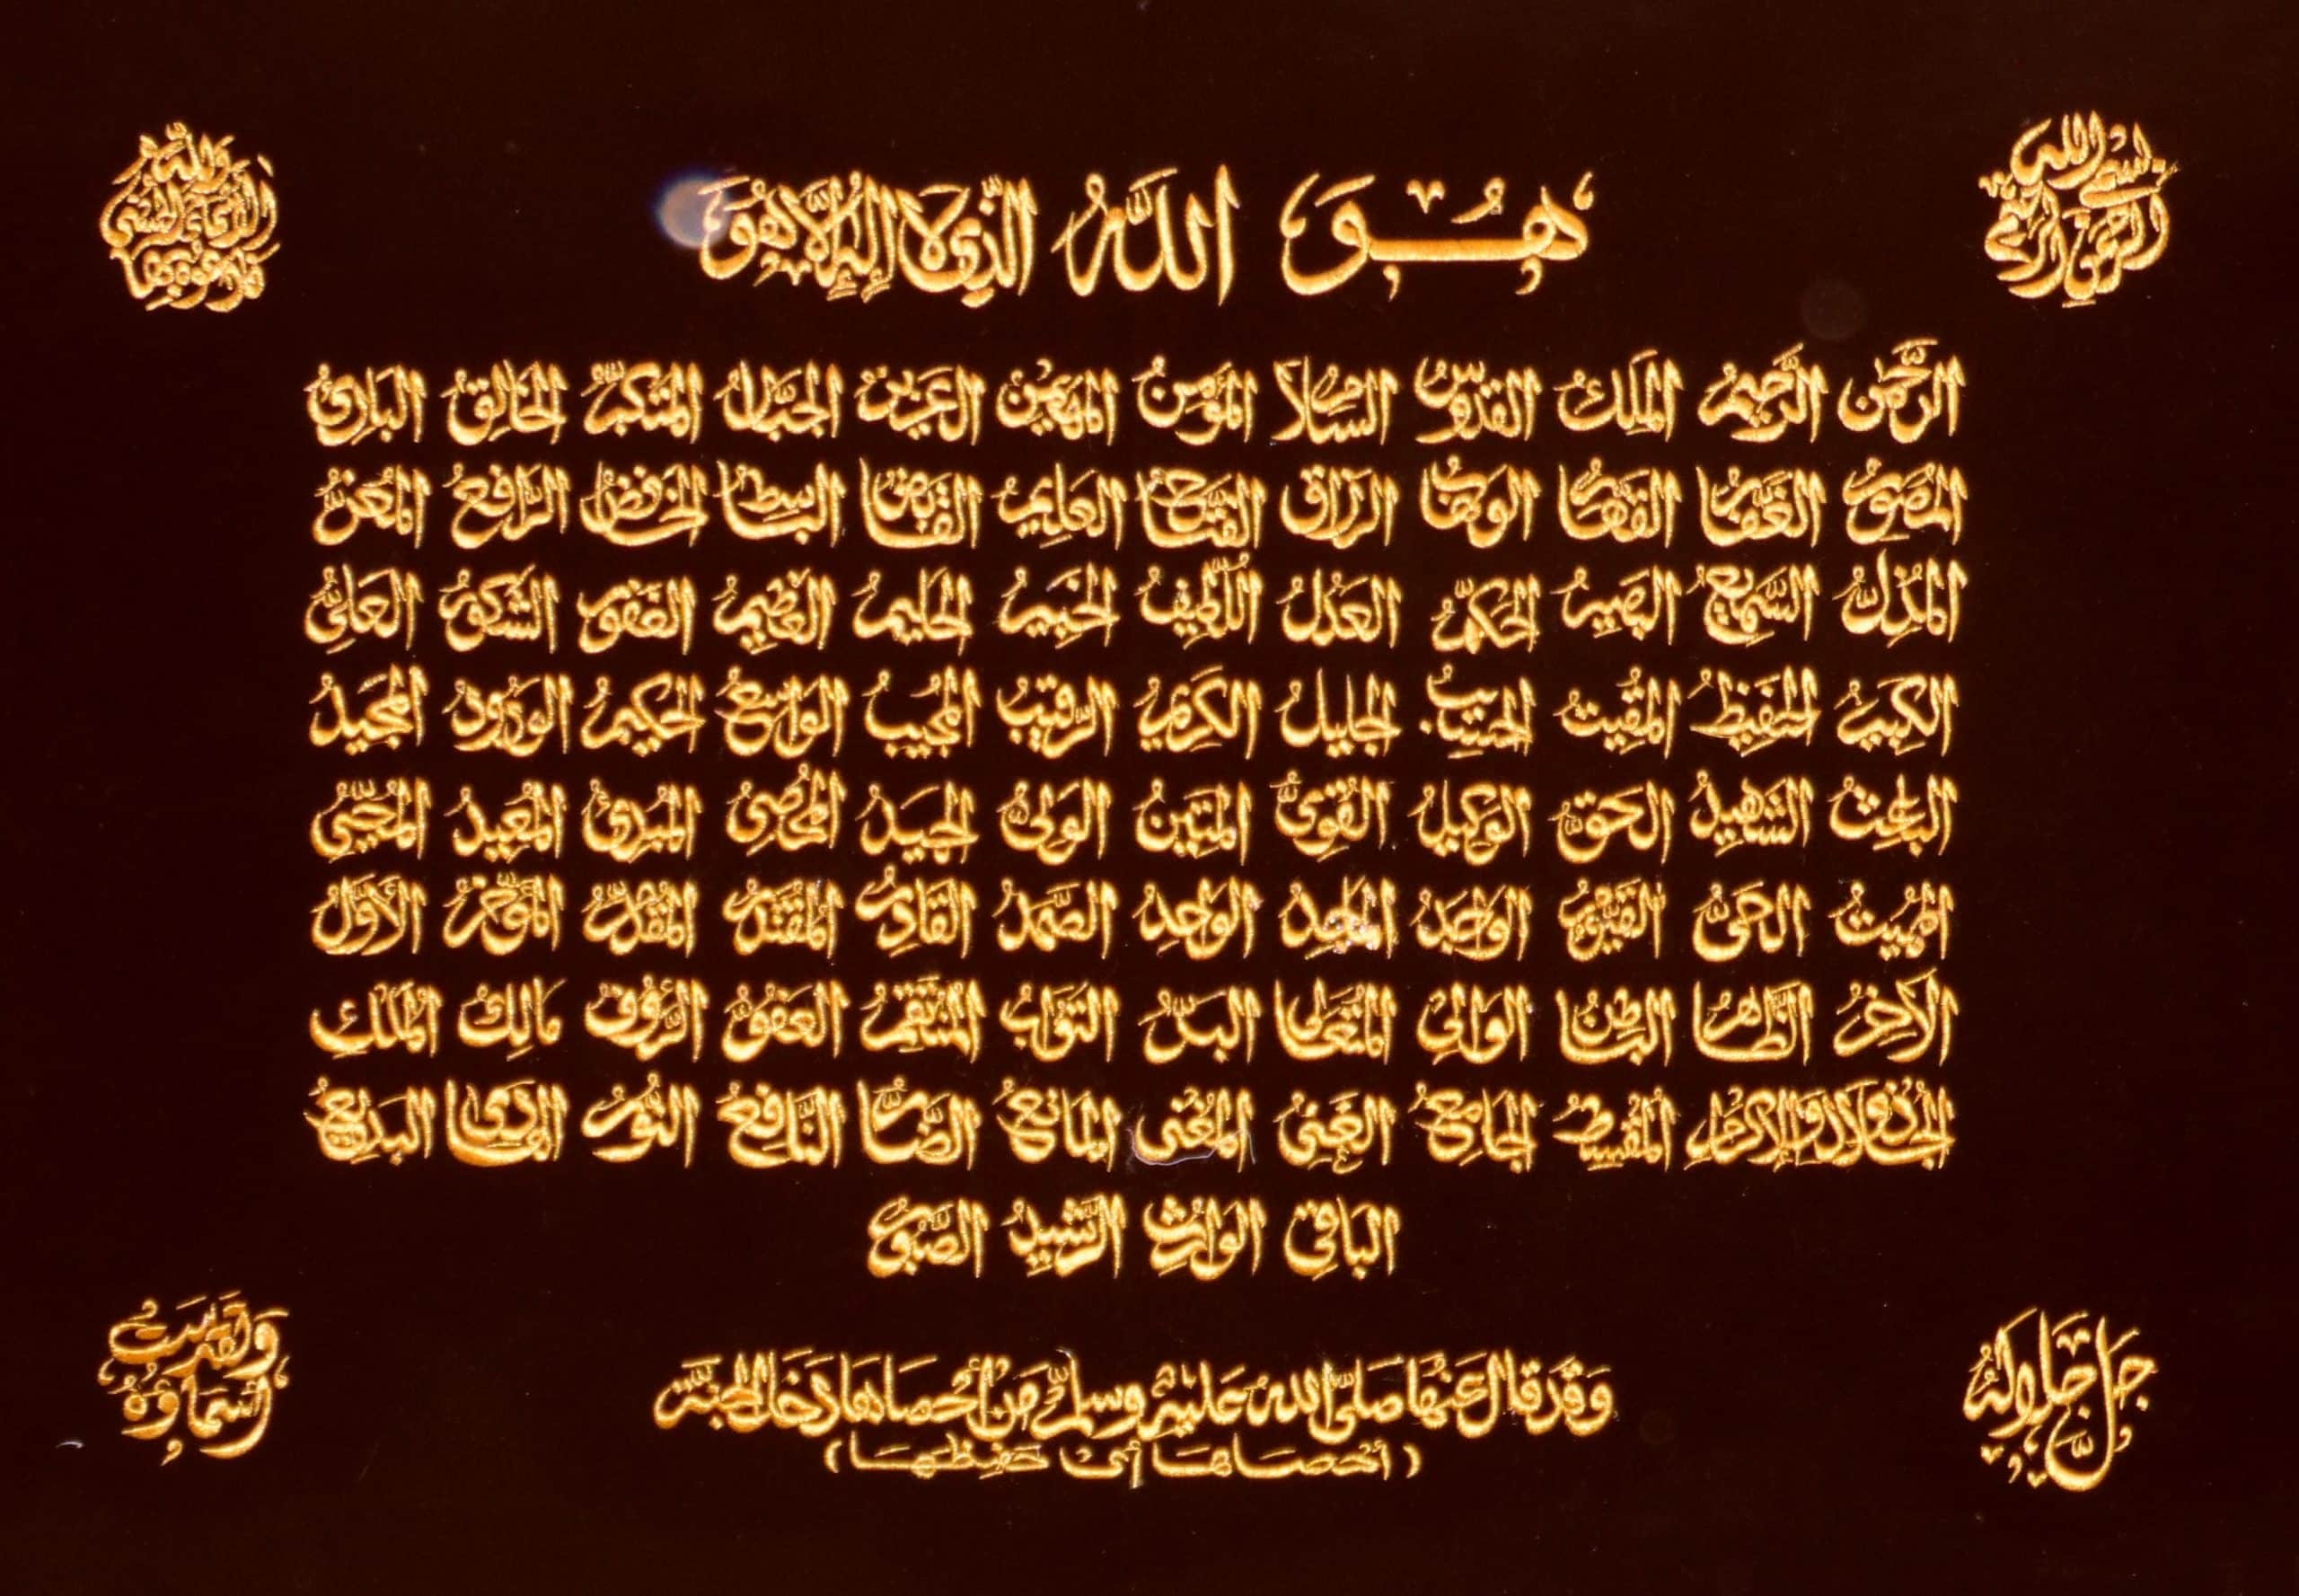 بسم الله الرحمن الرحيم
ولله الأسماء الحسنى فادعوه بها
هُوَ اللهُ الَّذِي لَا إِلَهَ إِلَّا هُوَ
الرَّحْمٰن الرَّحِيمُ المَلِكُ القُدُّوسُ السَّلَامُ المُؤْمِنُ المُهَيْمِنُ العَزِيزُ الجَبَّارُ المُتَكَبِّرُ الخَالِقُ البَارِئُ
المُصَوِّرُ الغَفَّارُ القَهَّارُ الوَهَّابُ الرَّزَّاقُ الفَتَّاحُ العَلِيمُ القَابِضُ البَاسِطُ الخَافِضُ الرَّافِعُ المُعِزُّ
المُذِلُّ السَّمِيعُ البَصِيرُ الحَكَمُ العَدْلُ اللَّطِيفُ الخَبِيرُ الحَلِيمُ العَظِيمُ الغَفُورُ الشَّكُورُ العَلِيُّ
الكَبِيرُ الحَفِيظُ المُقِيتُ الحَسِيبُ الجَلِيلُ الكَرِيمُ الرَّقِيبُ المُجِيبُ الوَاسِعُ الحَكِيمُ الوَدُودُ المَجِيدُ
البَاعِثُ الشَّهِيدُ الحَقُّ الوَكِيلُ القَوِيُّ المَتِينُ الوَلِيُّ الحَمِيدُ المُحْصِي المُبْدِئُ المُعِيدُ المُحْيِي
المُمِيتُ الحَيُّ القَيُّومُ الوَاجِدُ المَاجِدُ الوَاحِدُ الصَّمَدُ القَادِرُ المُقْتَدِرُ المُقَدِّمُ المُؤَخِّرُ الأَوَّلُ
الآخِرُ الظَّاهِرُ البَاطِنُ الوَالِي المُتَعَالِي البَرُّ التَّوَّابُ المُنْتَقِمُ العَفُوُّ الرَّؤُوفُ مَالِكُ المُلْكِ
ذُو الجَلَالِ وَالإِكْرَامِ المُقْسِطُ الجَامِعُ الغَنِيُّ المُغْنِي المَانِعُ الضَّارُّ النَّافِعُ النُّورُ الهَادِي البَدِيعُ
البَاقِي الوَارِثُ الرَّشِيدُ الصَّبُورُ
جَلَّ جَلَالُهُ
وَتَقَدَّسَتْ أَسْمَاؤُهُ
وَقَدْ قَالَ عَنْهَا صَلَّى اللهُ عَلَيْهِ وَسَلَّمَ مَنْ أَحْصَاهَا دَخَلَ الجَنَّةَ
(أحصاها أي حفظها)